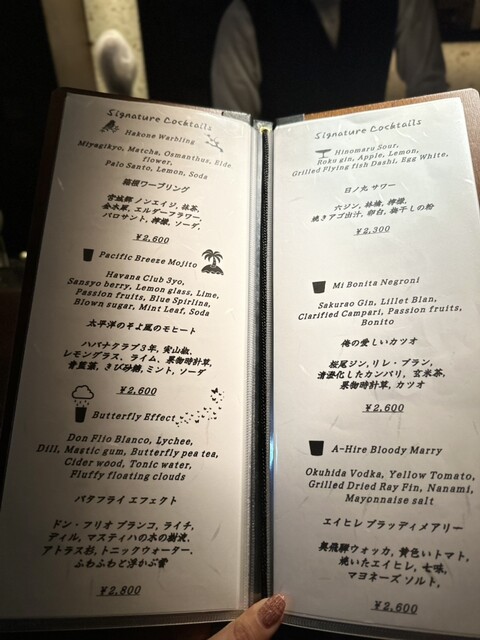 Signature Cocktails
Hakone Warbling
Miyagikyo, Matcha, Osmanthus, Elde
flower,
Palo Santo, Lemon, Soda
箱根ワーブリング
宮城峡 ノンエイジ, 抹茶,
金木犀, エルダーフラワー,
パロサント, 檸檬, ソーダ,
¥2,600
Pacific Breeze Mojito
Havana Club 3yo,
Sansyo berry, Lemon glass, Lime,
Passion fruits, Blue Spirlina,
Blown sugar, Mint Leaf, Soda
太平洋のそよ風のモヒート
ハバナクラブ3年, 実山椒,
レモングラス, ライム, 果物時計草,
青風藻, きび砂糖, ミント, ソーダ
¥2,600
Butterfly Effect
Don Flio Blanco, Lychee,
Dill, Mastic gum, Butterfly pea tea,
Cider wood, Tonic water,
Fluffy floating clouds
バタフライ エフェクト
ドン・フリオ ブランコ, ライチ,
ディル, マスティハの木の樹液,
アトラス杉, トニックウォーター,
ふわふわと浮かぶ雲
¥2,800
Signature Cocktails
Hinomaru Sour,
Roku gin, Apple, Lemon,
Grilled Flying fish Dashi, Egg White,
日ノ丸 サワー
六ジン, 林檎, 檸檬,
焼きアゴ出汁, 卵白, 梅干しの粉
¥2,300
Mi Bonita Negroni
Sakurao Gin, Lillet Blan,
Clarified Campari, Passion fruits,
Bonito
俺の愛しいカツオ
桜尾ジン, リレ・ブラン,
清澄化したカンパリ, 玄米茶,
果物時計草, カツオ
¥2,600
A-Hire Bloody Marry
Okuhida Vodka, Yellow Tomato,
Grilled Dried Ray Fin, Nanami,
Mayonnaise salt
エイヒレ ブラッディメアリー
奥飛騨ウォッカ, 黄色いトマト,
焼いたエイヒレ, 七味,
マヨネーズ ソルト,
¥2,600